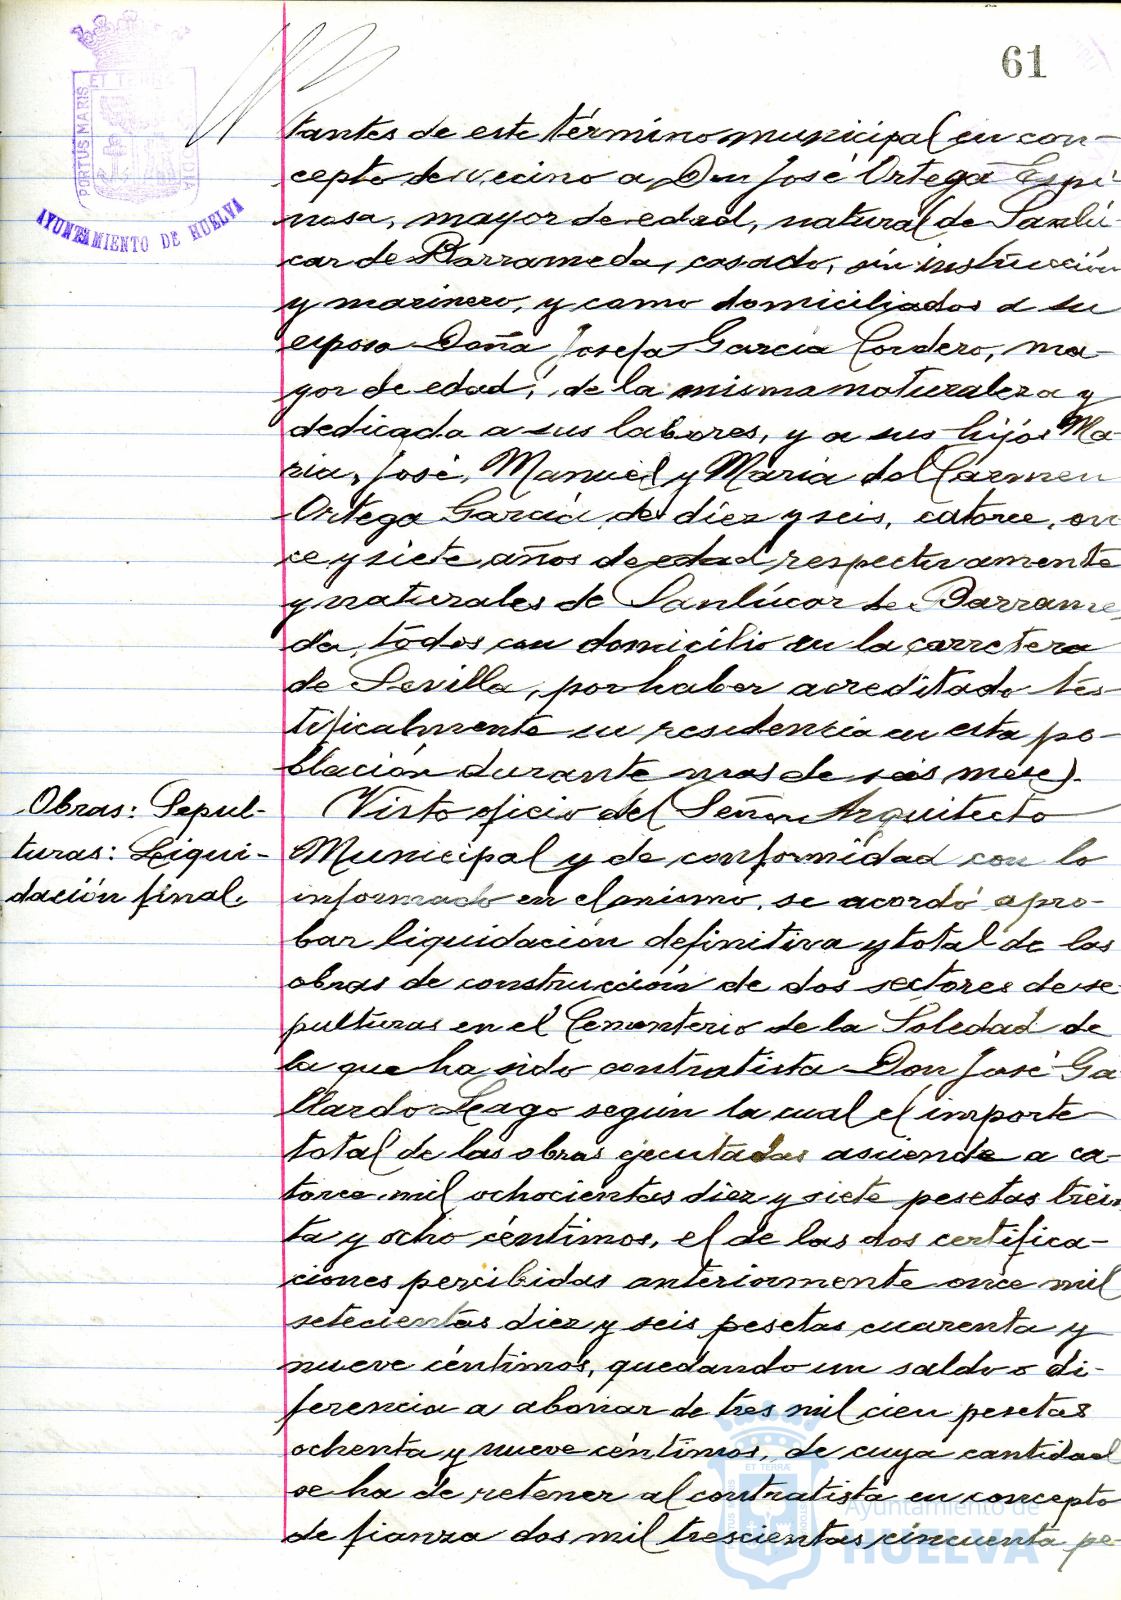 61
ET TERRÆ
PORTUS MARIS
AYUNTAMIENTO DE HUELVA
tantes de este término municipal en con-
cepto de vecino a Don José Ortega Espi
nosa, mayor de edad, natural de Sanlú-
car de Barrameda, casado, sin instrucción
y marinero, y como domiciliados a su
esposa Doña Josefa García Cordero, ma-
yor de edad, de la misma naturaleza y
dedicada a sus labores, y a sus hijos Ma-
ria, José, Manuel y María del Carmen
Ortega García, de diez y seis, catorce, on
ce y siete años de edad respectivamente
y naturales de Sanlúcar de Barrame
da, todos con domicilio en la carretera
de Sevilla, por haber acreditado tes-
tificalmente su residencia en esta po-
blación durante mas de seis meses.
Obras: Sepul-
turas: Liqui-
dación final.
Visto oficio del Señor Arquitecto
Municipal y de conformidad con lo
informado en el mismo, se acordó apro-
bar liquidación definitiva y total de las
obras de construcción de dos sectores de se
pulturas en el Cementerio de la Soledad de
la que ha sido contratista Don José Ga
llardo Lago según la cual el importe
total de las obras ejecutadas asciende a ca-
torce mil ochocientas diez y siete pesetas trein
ta y ocho céntimos, el de las dos certifica-
ciones percibidas anteriormente once mil
setecientas diez y seis pesetas cuarenta y
nueve céntimos, quedando un saldo o di-
ferencia a abonar de tres mil cien pesetas
ochenta y nueve céntimos, de cuya cantidad
se ha de retener al contratista en concepto
de fianza dos mil trescientas cincuenta pe-
Ayuntamiento de
HUELVA